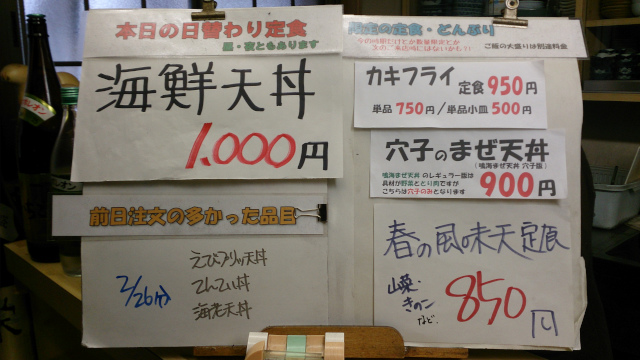 本日の日替わり定食
昼・夜ともあります
海鮮天丼
1.000円
前日注文の多かった品目
2/26分
えびプリッ天丼
てんてい丼
海老天丼
限定の定食・どんぶり
ご飯の大盛りは別途料金
カキフライ 定食950円
単品750円/単品小皿500円
穴子のまぜ天丼
(鳴海まぜ天丼 穴子版)
鳴海まぜ天丼 のレギュラー版は
具材が野菜ととり肉ですが
こちらは穴子のみとなります
900円
春の風味天定食
山菜・
きのこ
など、
850円